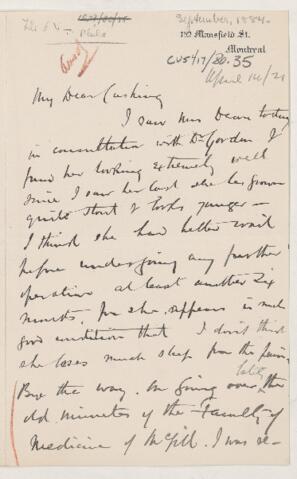 September, 1884.
192 Mansfield St.
Montreal
CUS417/80.35
April 14/21
My Dear Cushing
I saw Mrs Dean today
in consultation with Dr Gordon I
find her looking extremely well
since I saw her last she has grown
quite stout & looks younger —
I think she had better wait
before undergoing any further
operation at least another six
months. for she appears in such
good condition that I don't think
she loses much sleep from the pain,
Bye the way. On going over the
old minutes of the Faculty of
Medicine of McGill. I was re-